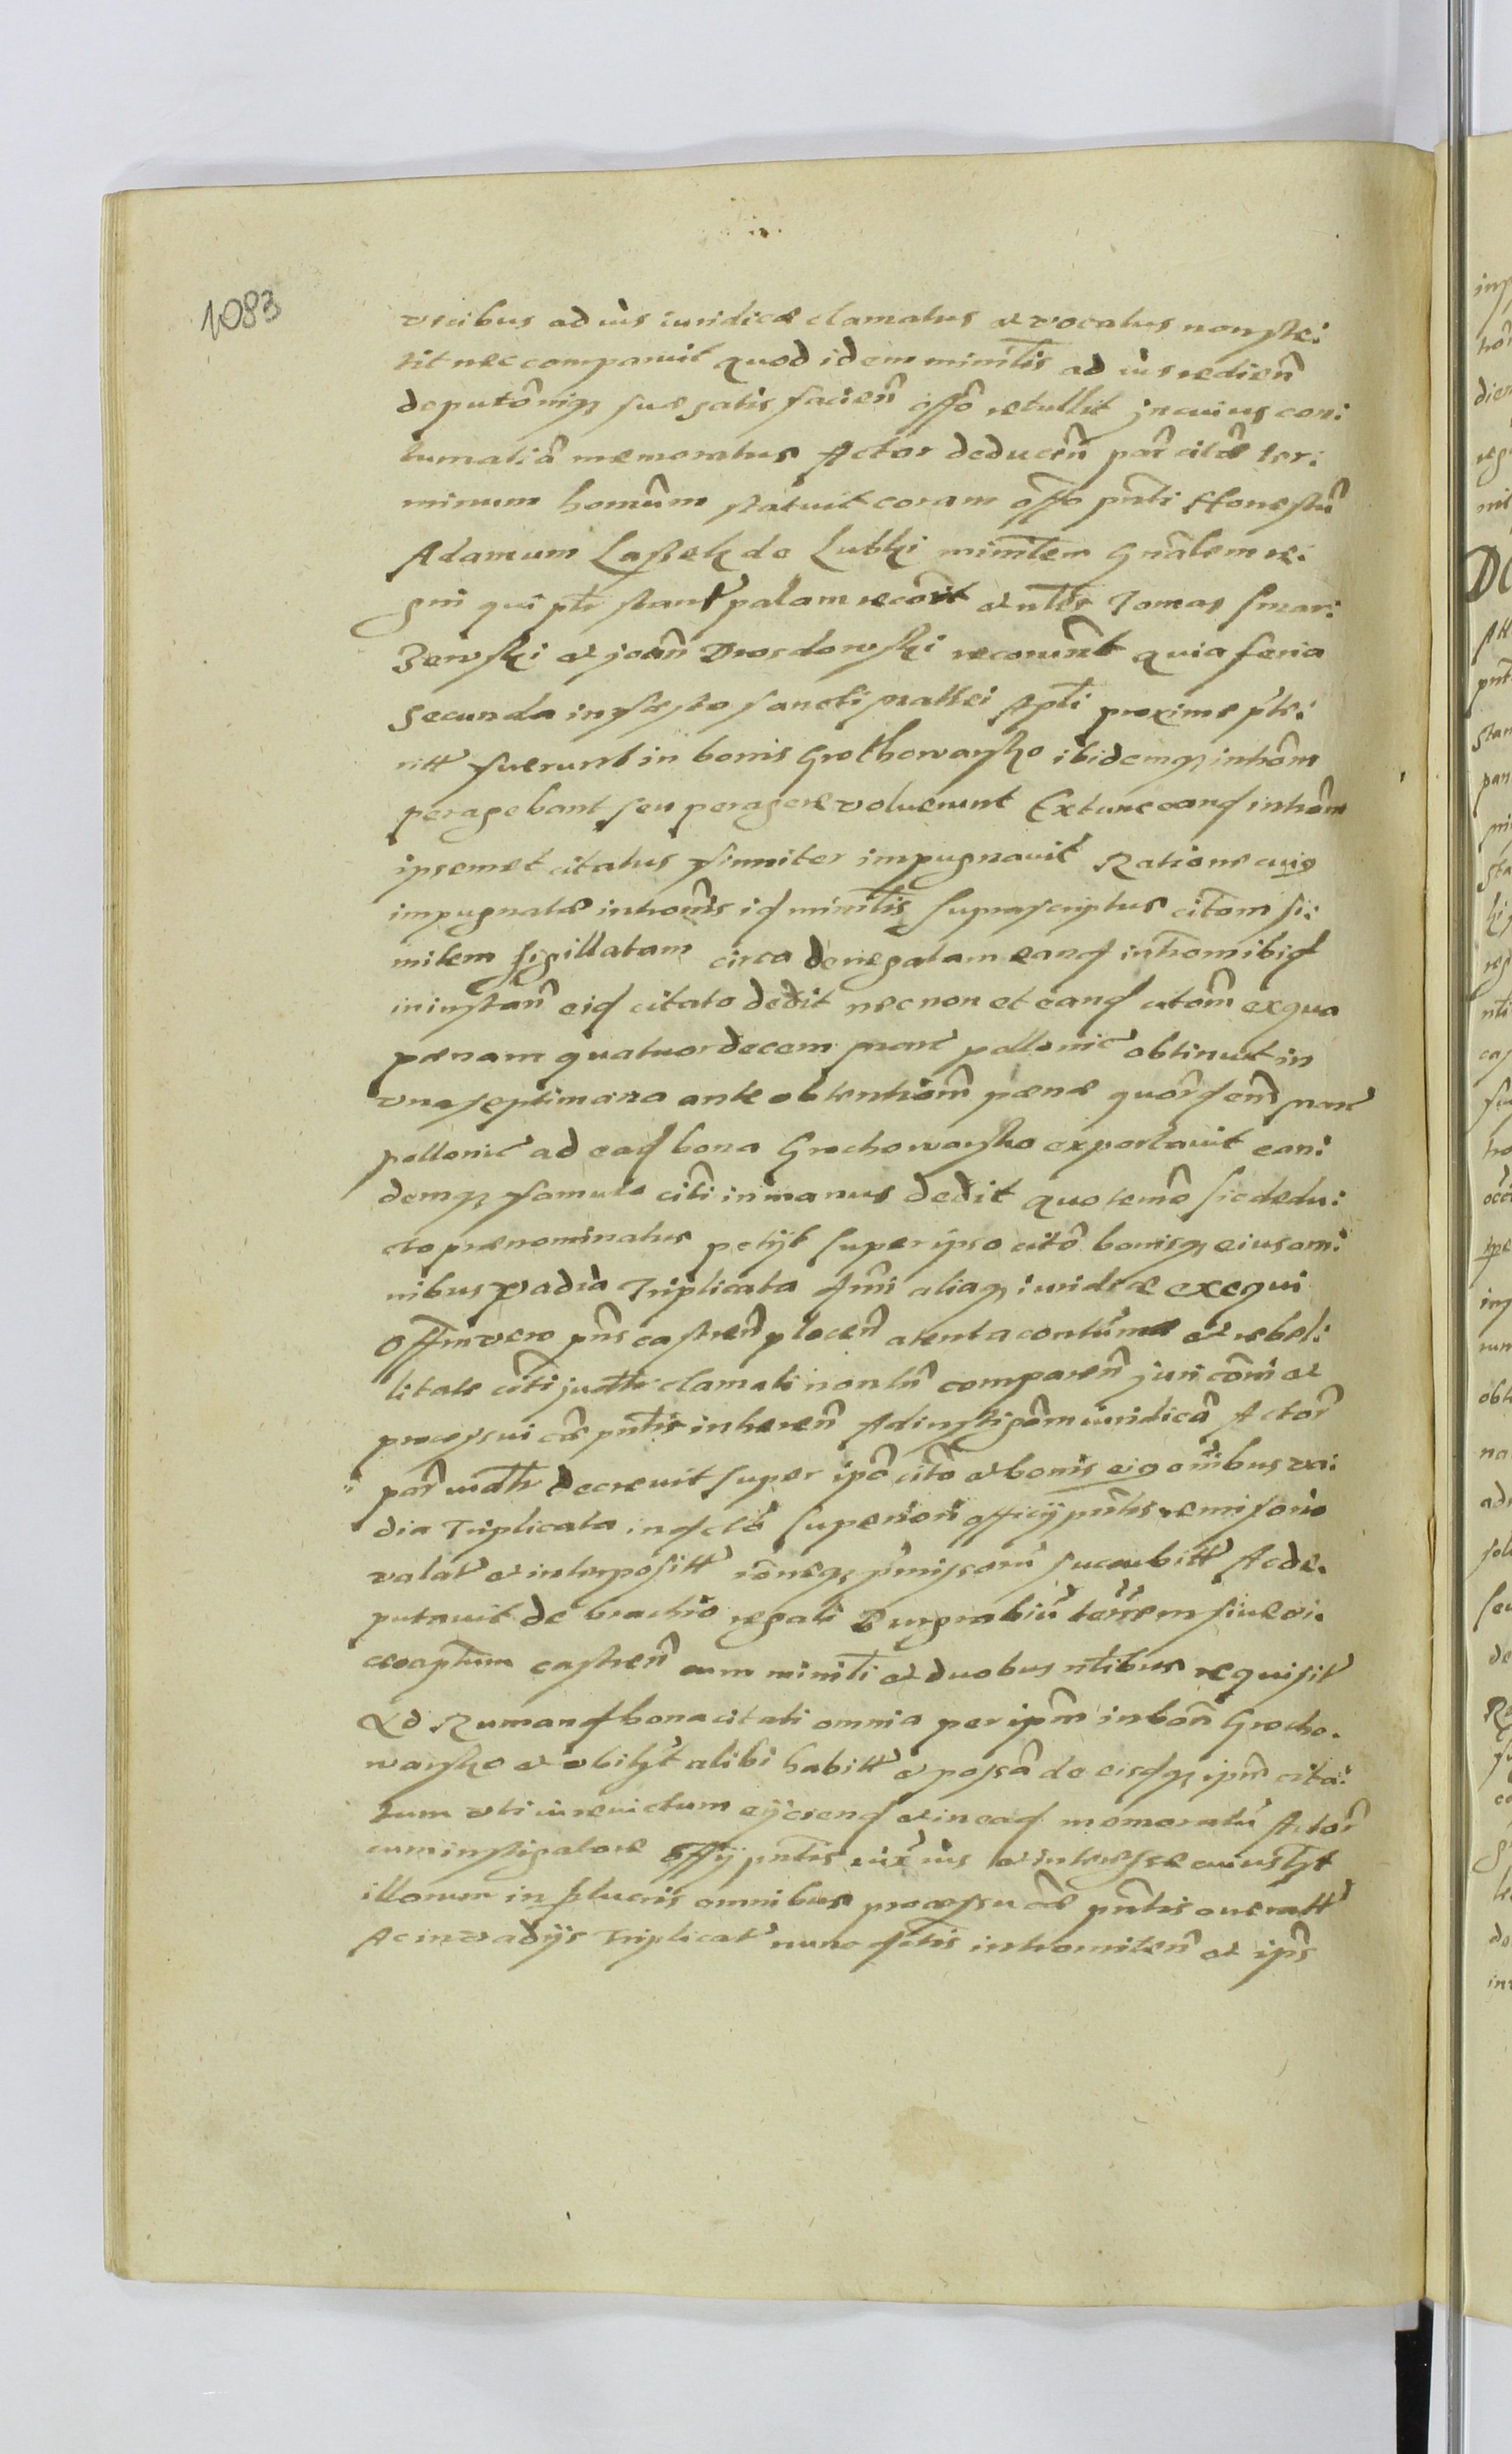 1083
vicibus ad ius iuridicæ clamatus et vocatus non ste:
tit nec comparuit quod idem ministlis ad ius redien̄
deputōniqȝ suæ satis facien̄ offō retullit in cuius con:
tumatiā memoratus Actor deducen̄ par̄ citōe ter:
minum homūm statuit coram offō pn̄ti Honestū
Adamum Lassek de Lubki minl̄em Gn̄alem re:
gni qui ptr stans palam recōit et nl̄es Tomas Smar:
Zewski et joān Drozdowski recorunt̄ quia feria
Secunda in festo sancti Mattei Apl̄i proxime pte:
ritt fuerunt in bonis Grothowarsko ibidemqȝ intrōm
peragebant seu peragere voluerunt Extunc eand intrōm
ipsemet citatus firmiter impugnavit Ratione cuiȝ
impugnatæ intromīs id minlis suprascriptus citōm si:
milem sigillatam circa denegatam eand introm ibid
in instan̄ eid citato dedit nec non et eand citōm ex qua
pænam quatuordecem marc pollonic obtinuit in
una septimana ante obtentiōm pænæ quōrdem̄ marc
pollonic ad ead bona Grochowarsko exportavit ean:
demqȝ famulo citi in manus dedit quo termō sic dedu:
cto prænominatus petijt super ipso citō bonisqȝ eius om:
nibus vadia Triplicata iuridicæ exequi
Offm vero pns castren̄ plocen̄ atenta contumā et rebel:
litate citi clamati non tn̄ comparen̄ juri cōmi et
processui cæ pn̄tis inheren̄ Ad instigōm iuridicā Actor̄
par̄ decrevit super ipō citō et bonis eiȝ omībus va:
dia Triplicata superiori officij pn̄tis remissorio
valat et interpositt rōneqȝ pmissorū sucubitt Ac de:
putavit de brachio regali Burgrabiū terrem sive vi:
cecaptum castren̄ cum minl̄i et duobus nl̄ibus requisit
Ad Rumand bona citati omnia per ipm̄ in bōn Grocho:
warsko et ubilȝt alibi habitt et possā de eisdqȝ ipm̄ cita:
tum uti iurevictum eijciend et in ead memoratū Actor̄
cum instigatore offij pn̄tis iux ius et interesse cuiuslȝt
illorum in lucris omnibus processu cæ pn̄tis
Ac in vadijs Triplicat nunc intromiten̄ et ips̄